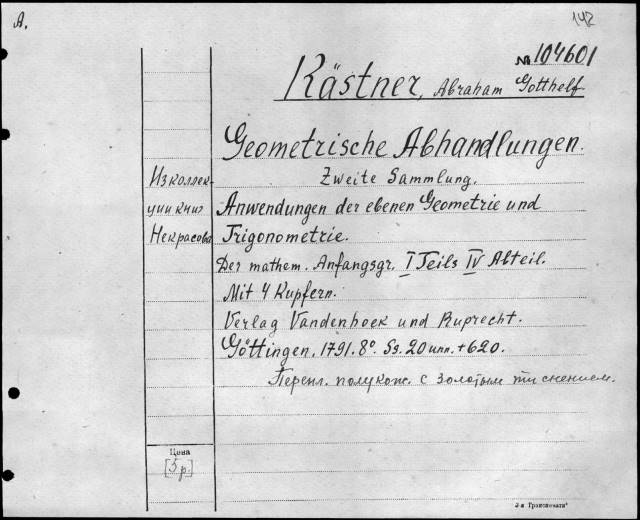 A.
142
№ 104601
Kästner, Abraham Gotthelf
Geometrische Abhandlungen.
Zweite Sammlung.
Из коллек-
ции книг
Некрасова
Anwendungen der ebenen Geometrie und
Trigonometrie.
Der mathem. Anfangsgr. I Teils IV Abteil.
Mit 4 Kupfern.
Verlag Vandenhoek und Ruprecht.
Göttingen. 1791. 8°. Ss. 20 unn. + 620.
Перепл. полукож. с золотым тиснением.
Цена
[5 р.]